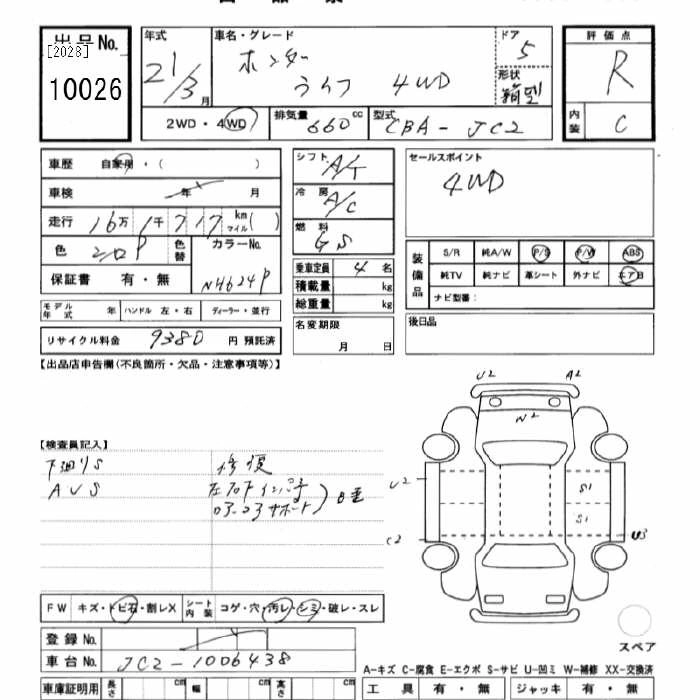 出品No.
[2028]
10026
年式
21/3
月
車名・グレード
ホンダ
ライフ 4WD
ドア
5
形状
箱型
評価点
R
内装
C
2WD・4WD
排気量
660
cc
型式
CBA-JC2
車歴 自家用・( )
車検 年 月
走行 16万1千717 km マイル( )
色
色替
カラーNo.
NH624P
保証書 有・無
シフト
A/T
冷房
A/C
燃料
GS
乗車定員 4 名
積載量 kg
総重量 kg
名変期限
月 日
セールスポイント
4WD
装備品
S/R 純A/W P/S P/W ABS
純TV 純ナビ 革シート 外ナビ エアB
ナビ型番:
後日品
モデル年式 年 ハンドル 左・右 ディーラー・並行
リサイクル料金 9380 円 預託済
【出品店申告欄(不良箇所・欠品・注意事項等)】
【検査員記入】
下廻りS
AUS
修復
03.03サポート
U2
A2
W2
U2
S1
S1
C2
U3
スペア
FW キズ・トビ石・割レX シート内装 コゲ・穴・汚レ・シミ・破レ・スレ
登録No.
車台No. JC2-1006438
A-キズ C-腐食 E-エクボ S-サビ U-凹ミ W-補修 XX-交換済
車庫証明用 長さ cm 幅 cm 高さ cm
工具 有・無 ジャッキ 有・無